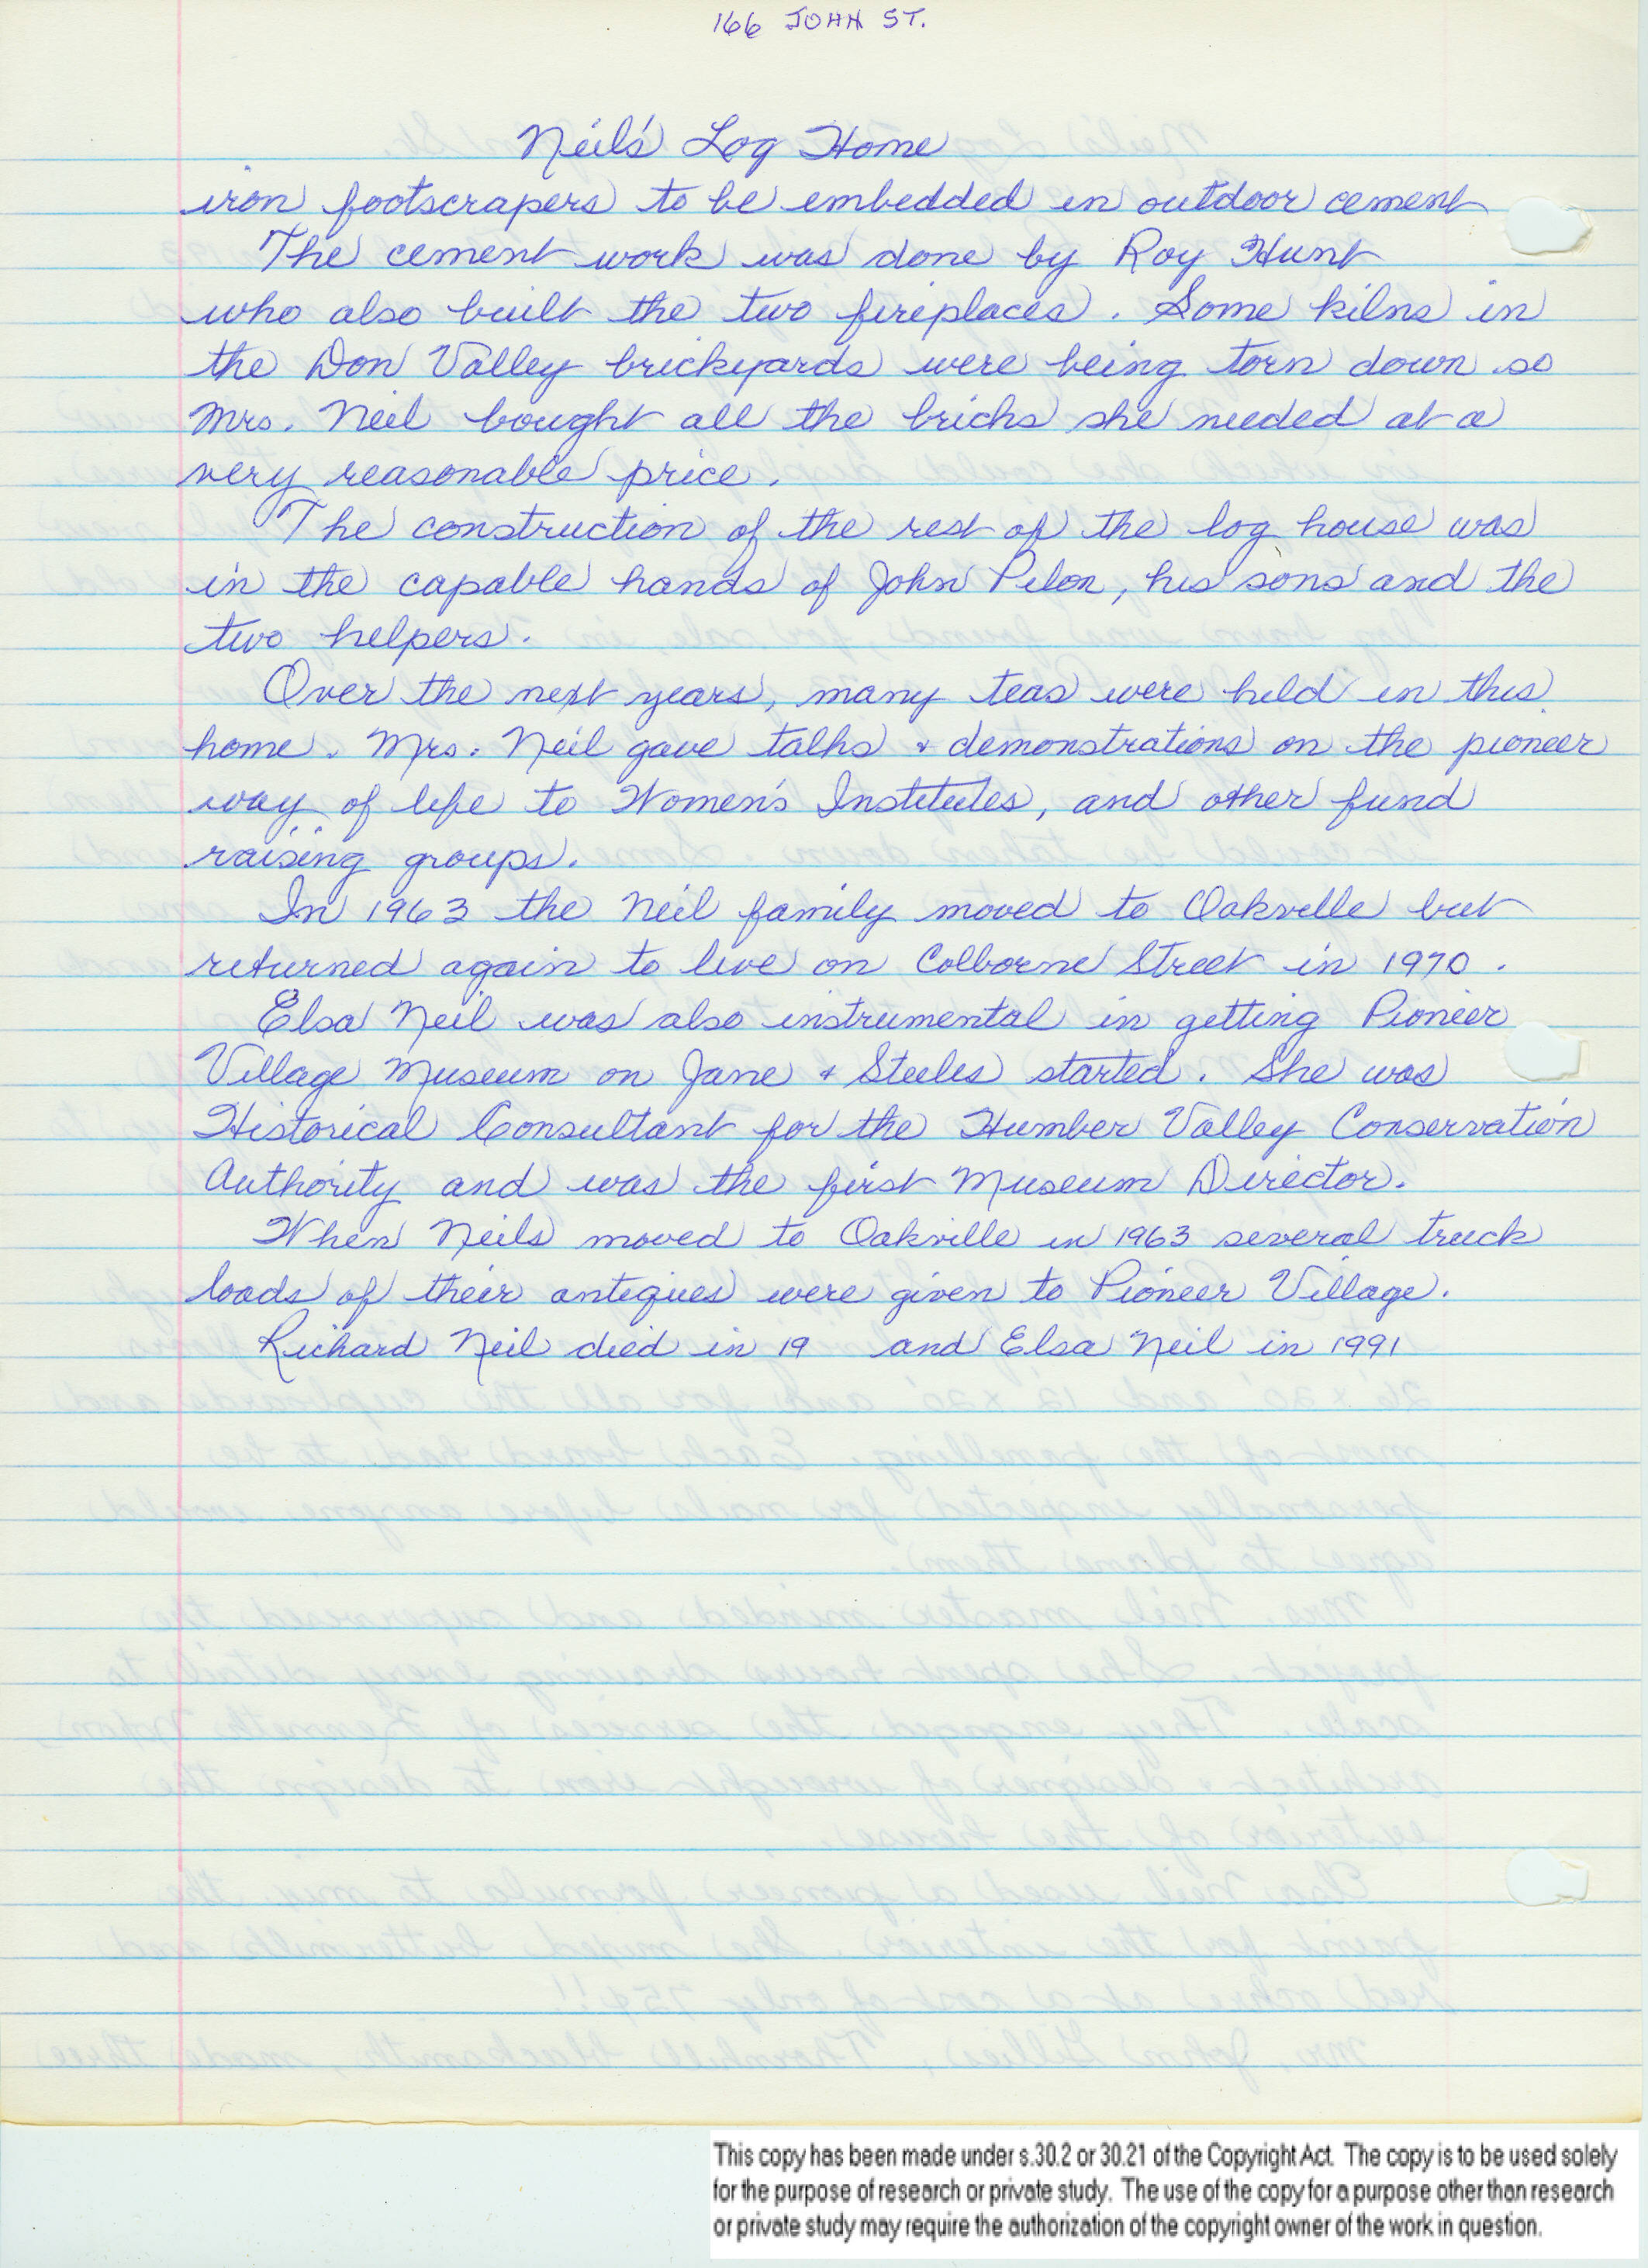 166 JOHN ST.
Neil's Log Home
iron footscrapers to be embedded in outdoor cement
The cement work was done by Roy Hunt
who also built the two fireplaces. Some kilns in
the Don Valley brickyards were being torn down so
Mrs. Neil bought all the bricks she needed at a
very reasonable price.
The construction of the rest of the log house was
in the capable hands of John Pelon, his sons and the
two helpers.
Over the next years, many teas were held in this
home. Mrs. Neil gave talks & demonstrations on the pioneer
way of life to Women's Institutes, and other fund
raising groups.
In 1963 the Neil family moved to Oakville but
returned again to live on Colborne Street in 1970.
Elsa Neil was also instrumental in getting Pioneer
Village Museum on Jane & Steeles started. She was
Historical Consultant for the Humber Valley Conservation
Authority and was the first Museum Director.
When Neils moved to Oakville in 1963 several truck
loads of their antiques were given to Pioneer Village.
Richard Neil died in 19 and Elsa Neil in 1991
This copy has been made under s.30.2 or 30.21 of the Copyright Act. The copy is to be used solely
for the purpose of research or private study. The use of the copy for a purpose other than research
or private study may require the authorization of the copyright owner of the work in question.